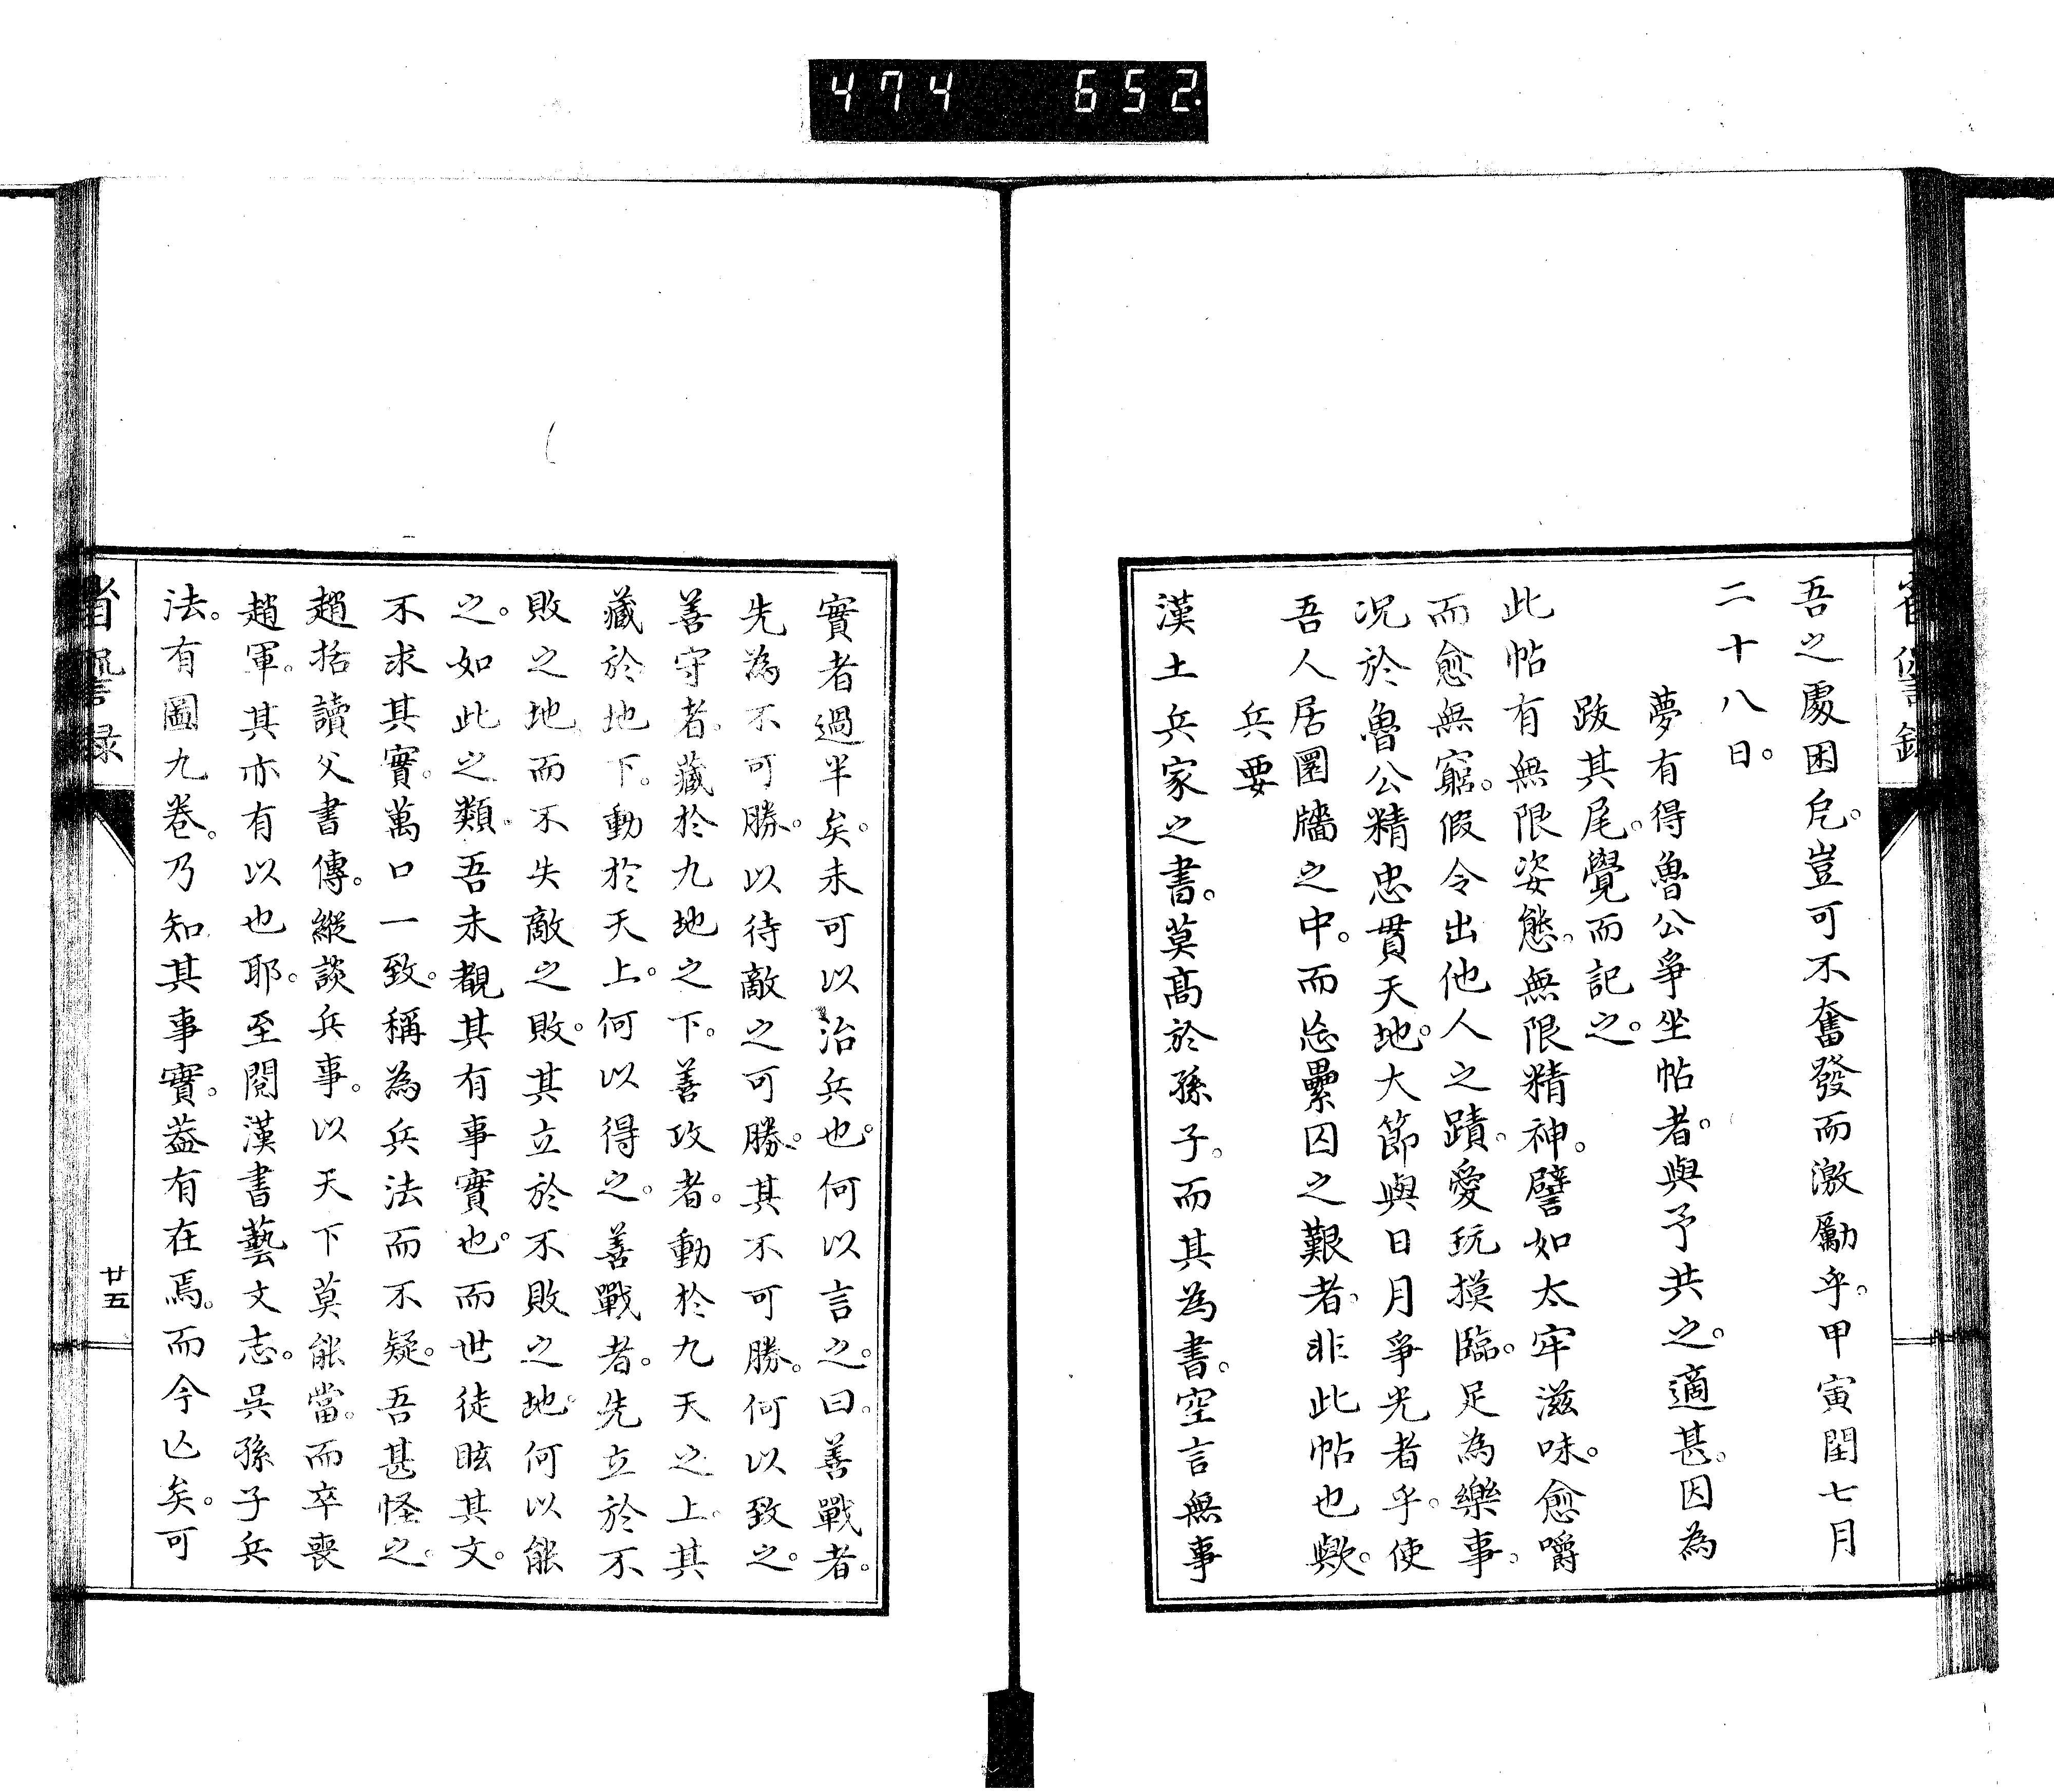 474 652.
省諐録
吾之處困戹。豈可不奮發而激勵乎。甲寅閏七月
二十八日。
夢有得魯公爭坐帖者。與予共之。適甚。因為
跋其尾。覺而記之。
此帖有無限姿態。無限精神。譬如太牢滋味。愈嚼
而愈無窮。假令出他人之蹟。愛玩摸臨。足為樂事。
况於魯公精忠貫天地。大節與日月爭光者乎。使
吾人居圜牆之中。而忘纍囚之艱者。非此帖也歟。
兵要
漢土兵家之書。莫高於孫子。而其為書。空言無事
實者過半矣。未可以治兵也。何以言之。曰。善戰者。
先為不可勝。以待敵之可勝。其不可勝。何以致之。
善守者。藏於九地之下。善攻者。動於九天之上。其
藏於地下。動於天上。何以得之。善戰者。先立於不
敗之地。而不失敵之敗。其立於不敗之地。何以能
之。如此之類。吾未覩其有事實也。而世徒眩其文。
不求其實。萬口一致。稱為兵法而不疑。吾甚怪之。
趙括讀父書傳。縱談兵事。以天下莫能當。而卒喪
趙軍。其亦有以也耶。至閱漢書藝文志。吳孫子兵
法。有圖九卷。乃知其事實。葢有在焉。而今亾矣。可
省諐録
廿五